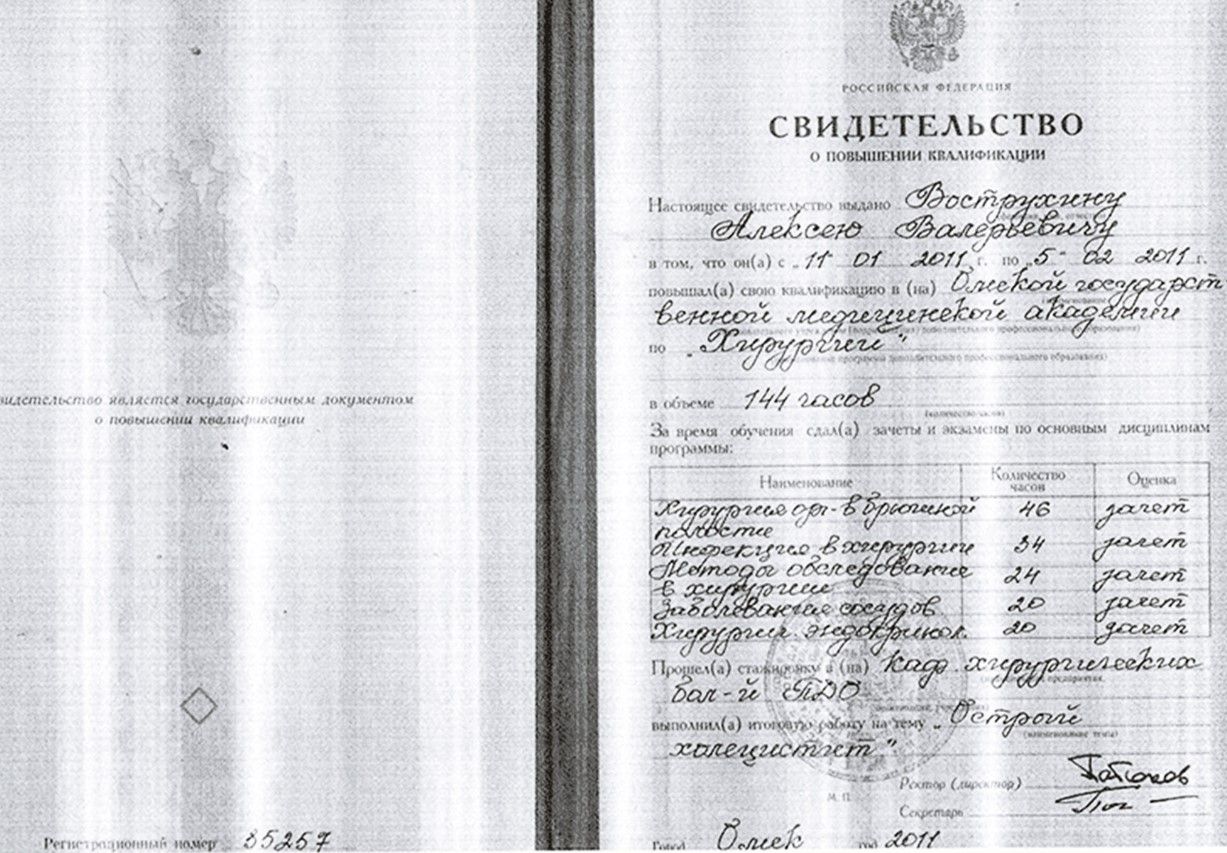 видетельство является государственным документом
о повышении квалификации
Регистрационный номер 35257
РОССИЙСКАЯ ФЕДЕРАЦИЯ
СВИДЕТЕЛЬСТВО
О ПОВЫШЕНИИ КВАЛИФИКАЦИИ
Настоящее свидетельство выдано Вострухину
Алексею Валерьевичу
в том, что он(а) с „11 01 2011 г. по „5 02 2011 г.
повышал(а) свою квалификацию в (на) Омской государст
венной медицинской академии
по „Хирургии"
(наименование программы дополнительного профессионального образования)
в объеме 144 часов
(количество часов)
За время обучения сдал(а) зачеты и экзамены по основным дисциплинам
программы:
Наименование Количество часов Оценка
Хирургия орг-в брюшной полости 46 зачет
Инфекция в хирургии 34 зачет
Методы обследования в хирургии 24 зачет
Заболевания сосудов 20 зачет
Хирургия эндокринол. 20 зачет
Прошел(а) стажировку в (на) каф. хирургических
бол-й ПДО
выполнил(а) итоговую работу на тему „Острый
(наименование темы)
холецистит"
Ректор (директор)
М. П.
Секретарь
Город Омск год 2011